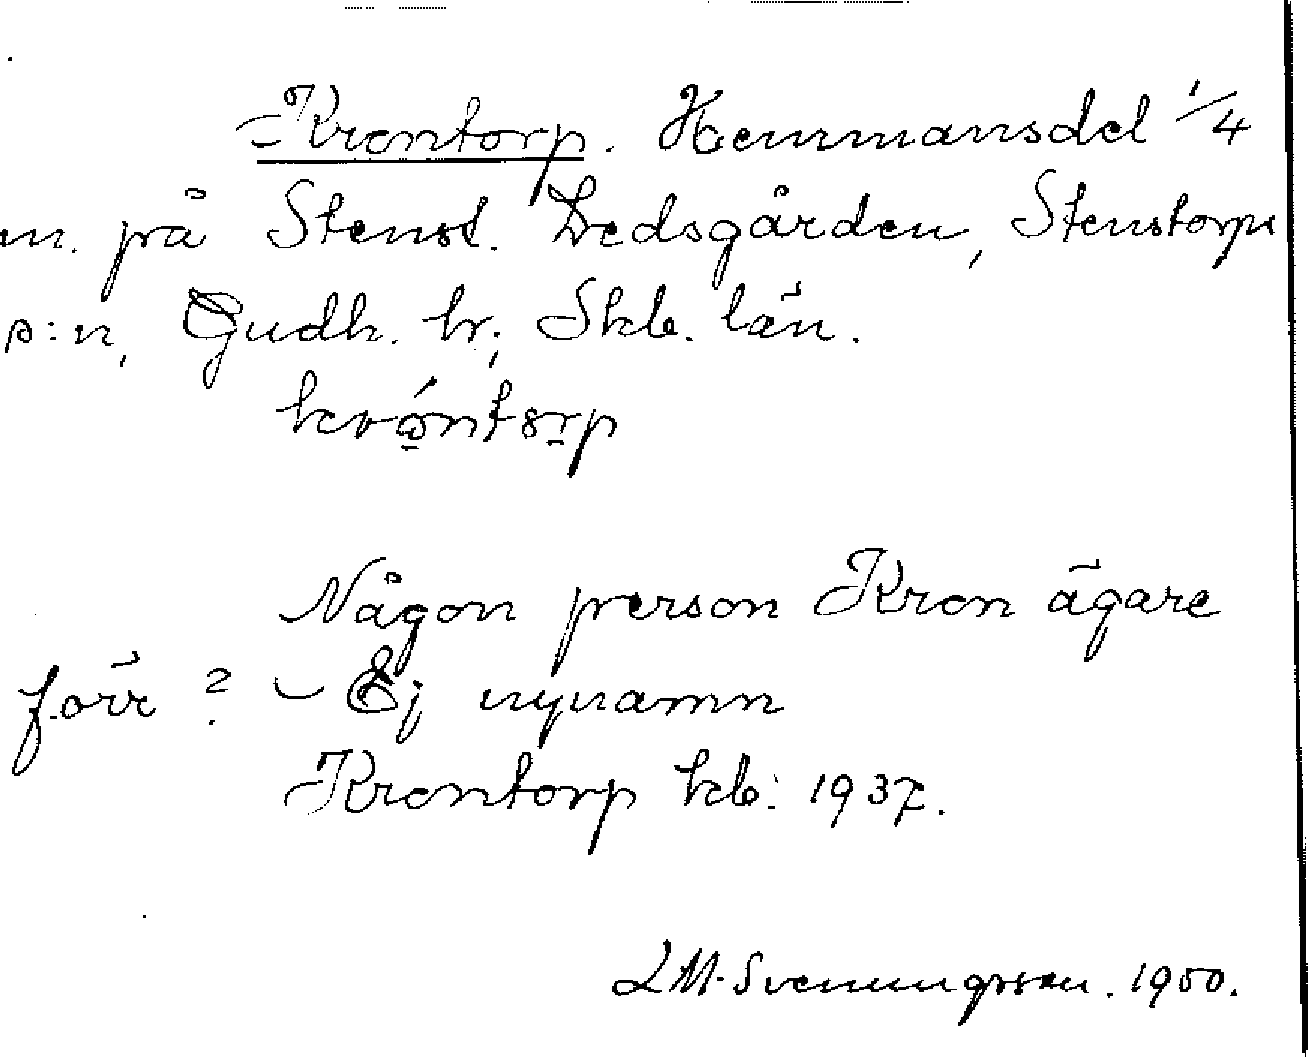 Krontorp. Hemmansdel 1/4
m. på Stenst. Dedsgården, Stenstorps
s:n, Gudh. hr, Skb. län.
krón̄torp
Någon person Kron ägare
förr? – Ej nynamn
Krontorp kb: 1937.
LM. Svenungsson. 1950.